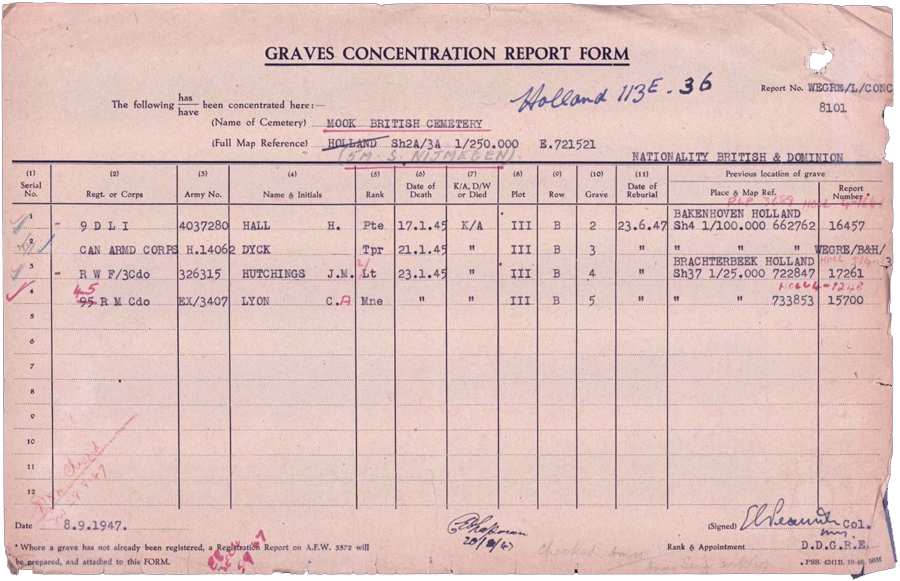 GRAVES CONCENTRATION REPORT FORM
Holland 113E. 36
Report No. WEGRE/L/CONC
8101
The following has/have been concentrated here:—
(Name of Cemetery) MOOK BRITISH CEMETERY
(Full Map Reference) HOLLAND Sh2A/3A 1/250.000 E.721521
(5M. S. NIJMEGEN).
NATIONALITY BRITISH & DOMINION
(1) Serial No. (2) Regt. or Corps (3) Army No. (4) Name & Initials (5) Rank (6) Date of Death (7) K/A, D/W or Died (8) Plot (9) Row (10) Grave (11) Date of Reburial Previous location of grave Place & Map Ref. Report Number
BAKENHOVEN HOLLAND
1 - 9 D L I 4037280 HALL H. Pte 17.1.45 K/A III B 2 23.6.47 Sh4 1/100.000 662762 16457
2 CAN ARMD CORPS H.14062 DYCK Tpr 21.1.45 " III B 3 " " " WEGRE/B&H/
BRACHTERBEEK HOLLAND
3 - R W F/3Cdo 326315 HUTCHINGS J.M. Lt 23.1.45 " III B 4 " Sh37 1/25.000 722847 17261
45
4 95 R M Cdo EX/3407 LYON C.A Mne " " III B 5 " " " 733853 15700
5
6
7
8
9
10
11
12
Date 8.9.1947.
(Signed) Col.
Rank & Appointment D.D.G.R.E.
* Where a grave has not already been registered, a Registration Report on A.F.W. 3372 will
be prepared, and attached to this FORM.
PSS. 4241B. 10-46. 50M